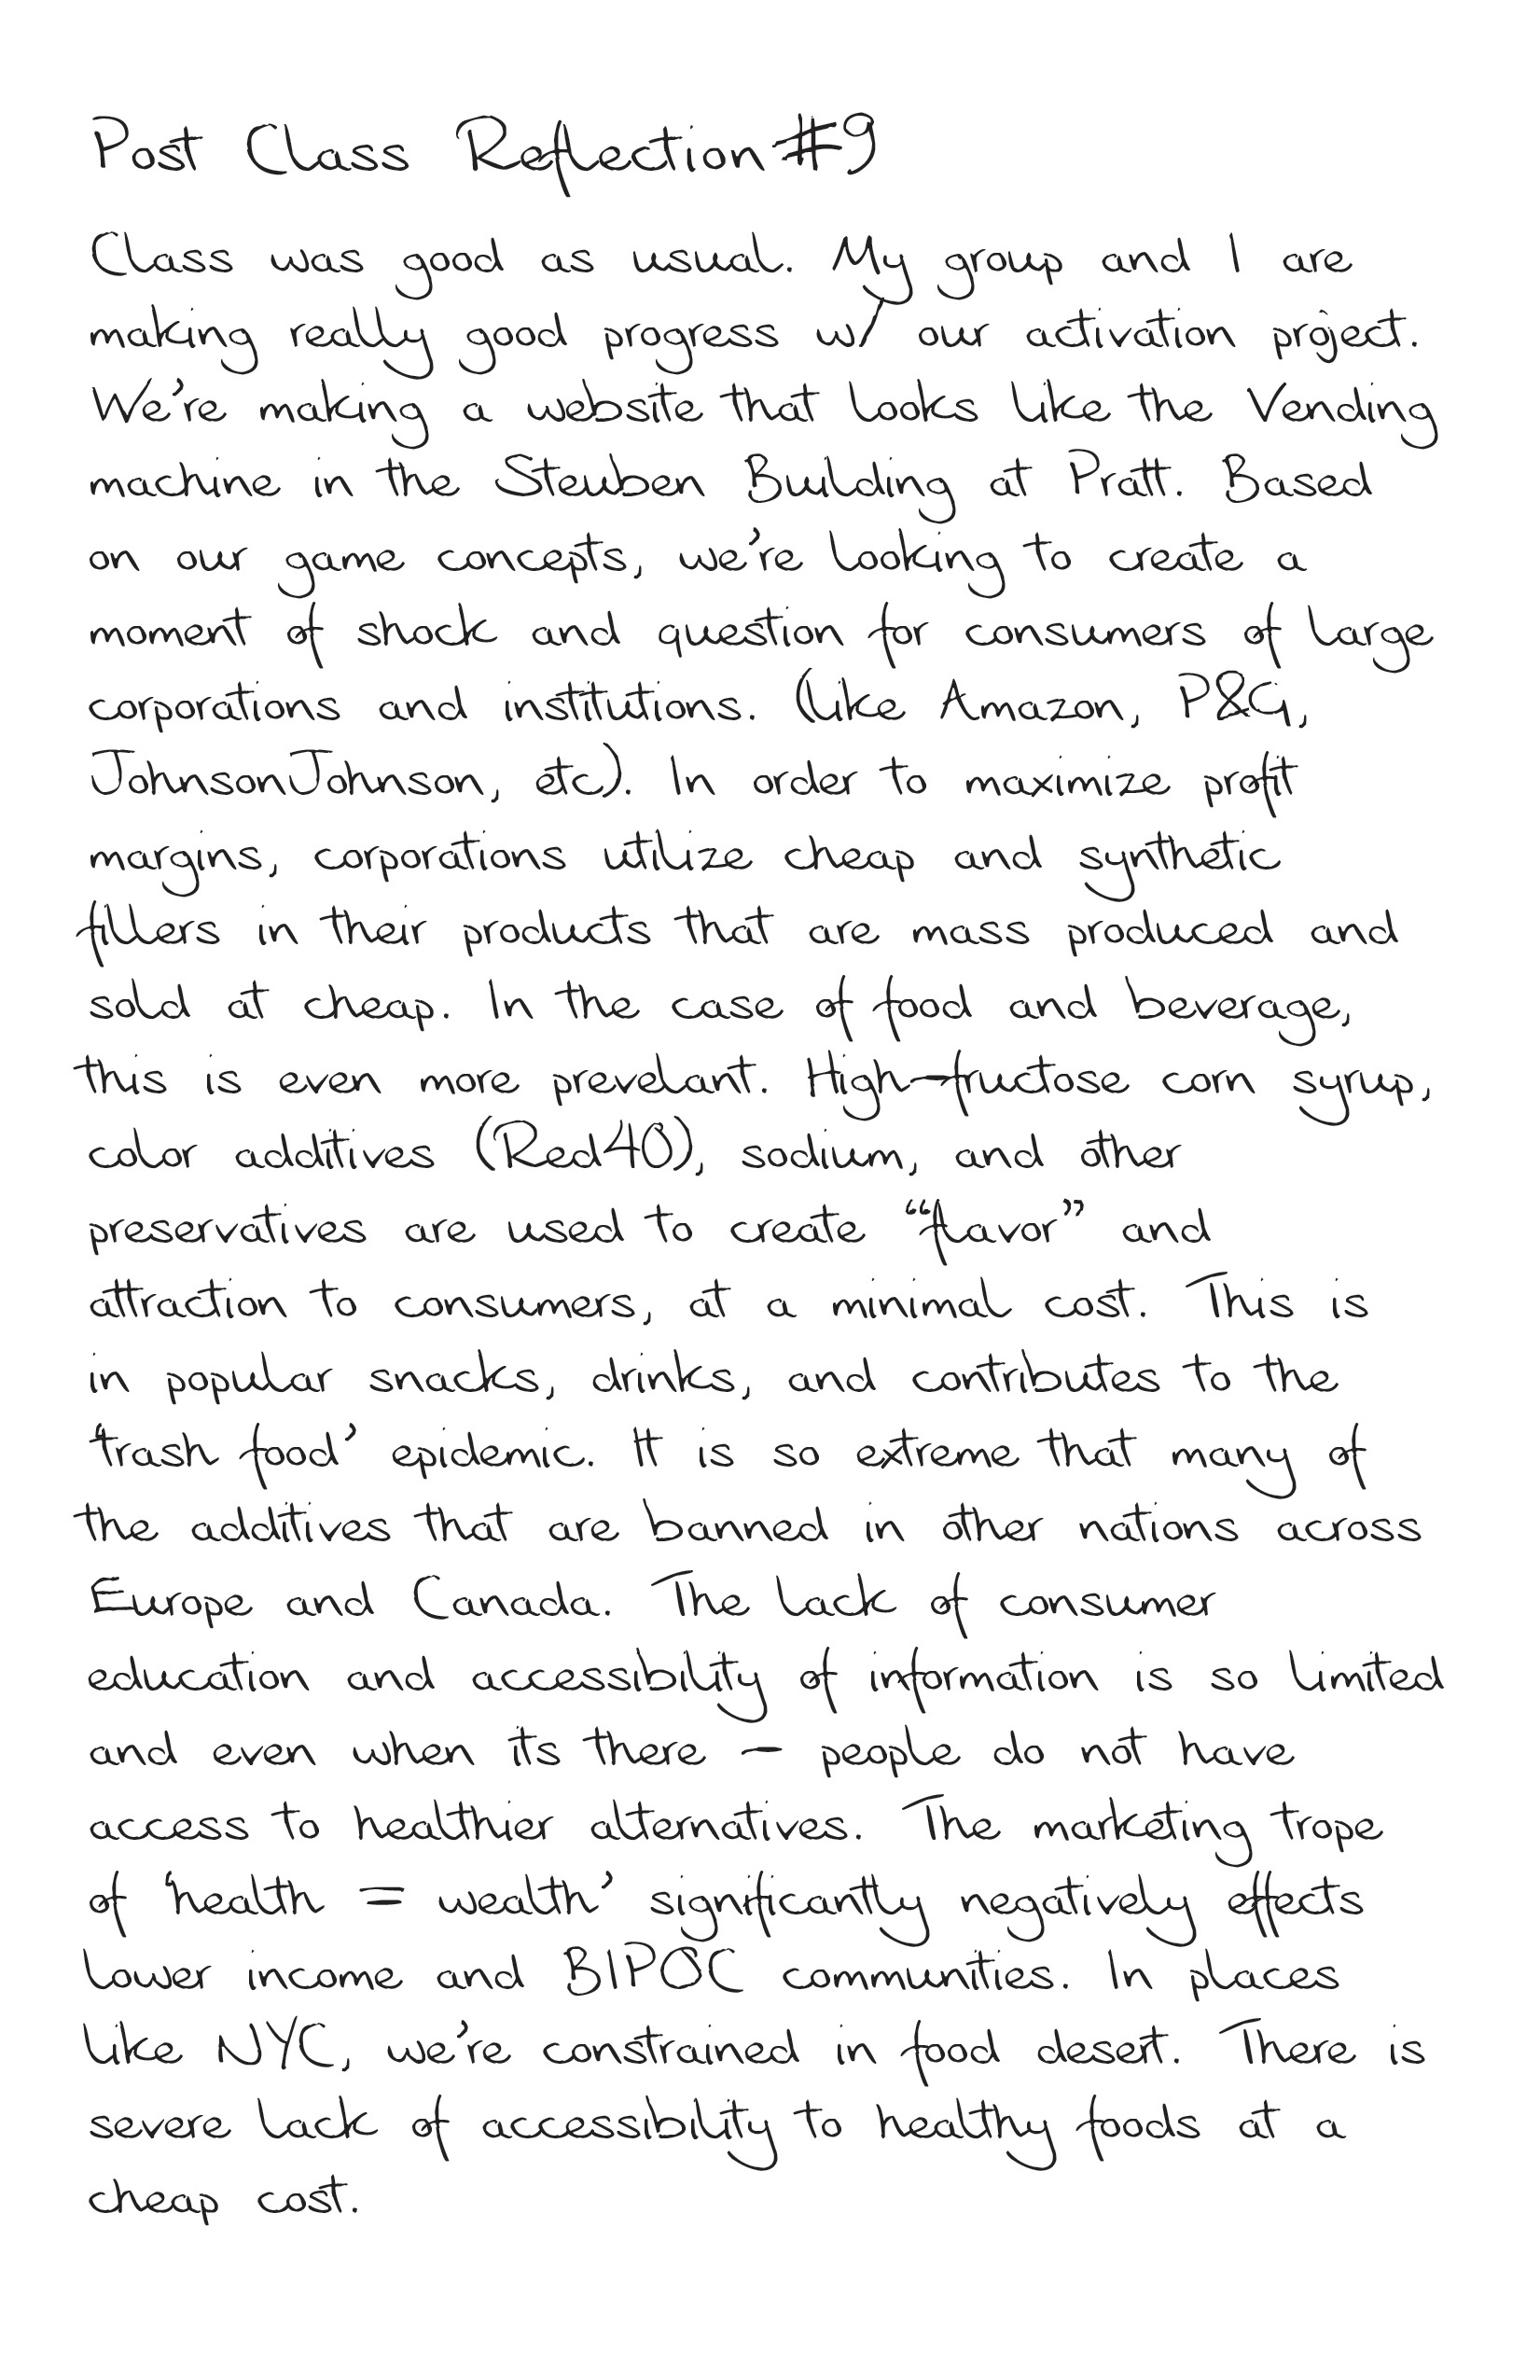 Post Class Reflection #9
Class was good as usual. My group and I are
making really good progress w/ our activation project.
We're making a website that looks like the Vending
machine in the Steuben Building at Pratt. Based
on our game concepts, we're looking to create a
moment of shock and question for consumers of large
corporations and institutions. (like Amazon, P&G,
JohnsonJohnson, etc). In order to maximize profit
margins, corporations utilize cheap and synthetic
fillers in their products that are mass produced and
sold at cheap. In the case of food and beverage,
this is even more prevelant. High-fructose corn syrup,
color additives (Red40), sodium, and other
preservatives are used to create “flavor” and
attraction to consumers, at a minimal cost. This is
in popular snacks, drinks, and contributes to the
‘trash food’ epidemic. It is so extreme that many of
the additives that are banned in other nations across
Europe and Canada. The lack of consumer
education and accessibility of information is so limited
and even when its there - people do not have
access to healthier alternatives. The marketing trope
of ‘health = wealth’ significantly negatively effects
lower income and BIPOC communities. In places
like NYC, we're constrained in food desert. There is
severe lack of accessibility to healthy foods at a
cheap cost.